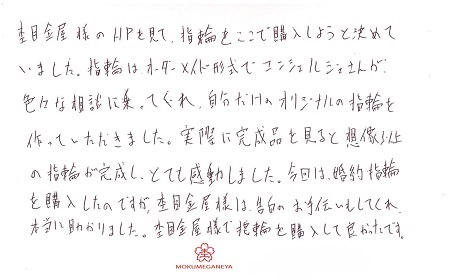 杢目金屋様のHPを見て、指輪をここで購入しようと決めて
いました。指輪はオーダーメイド形式でコンシェルジュさんが、
色々な相談に乗ってくれ、自分だけのオリジナルの指輪を
作っていただきました。実際に完成品を見ると想像以上
の指輪が完成し、とても感動しました。今回は、婚約指輪
を購入したのですが、杢目金屋様は、告白のお手伝いもしてくれ、
本当に助かりました。杢目金屋様で指輪を購入して良かったです。
MOKUMEGANEYA